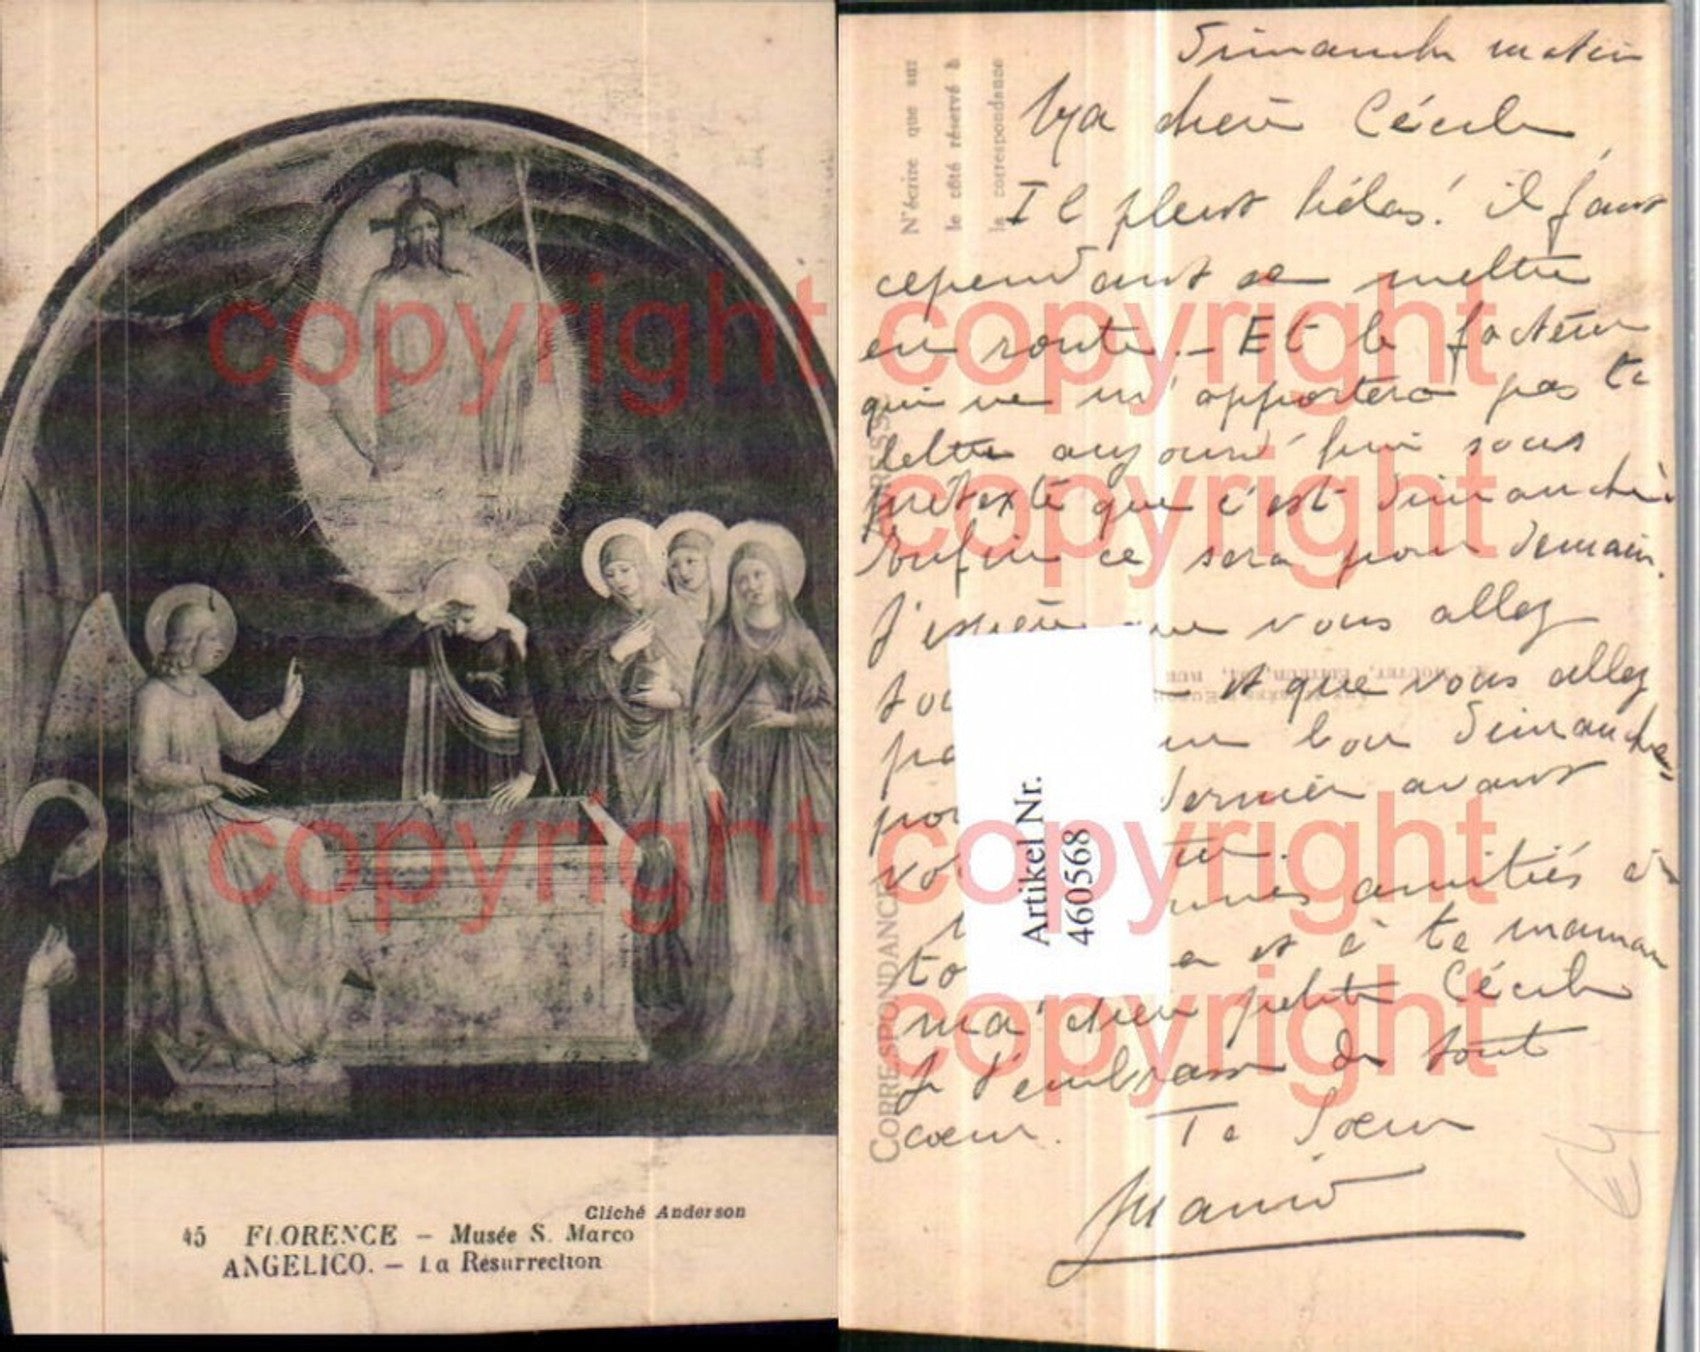 Cliché Anderson
45 FLORENCE — Musée S. Marco
ANGELICO. — La Résurrection
copyright
copyright
Dimanche matin
Ma chère Cécile
Il pleut hélas! il faut
cependant se mettre
en route. — Et le facteur
qui ne m'apportera pas ta
lettre aujourd'hui sous
prétexte que c'est dimanche
Enfin ce sera pour demain.
J'espère que vous allez
et que vous allez
bon dimanche
dernier avant
amitiés à
et à ta maman
ma chère petite Cécile
Je t'embrasse de tout
coeur. Ta Soeur
N'écrire que sur
le côté réservé à
la correspondance
CORRESPONDANCE
Artikel Nr.
460568
copyright
copyright
copyright
copyright